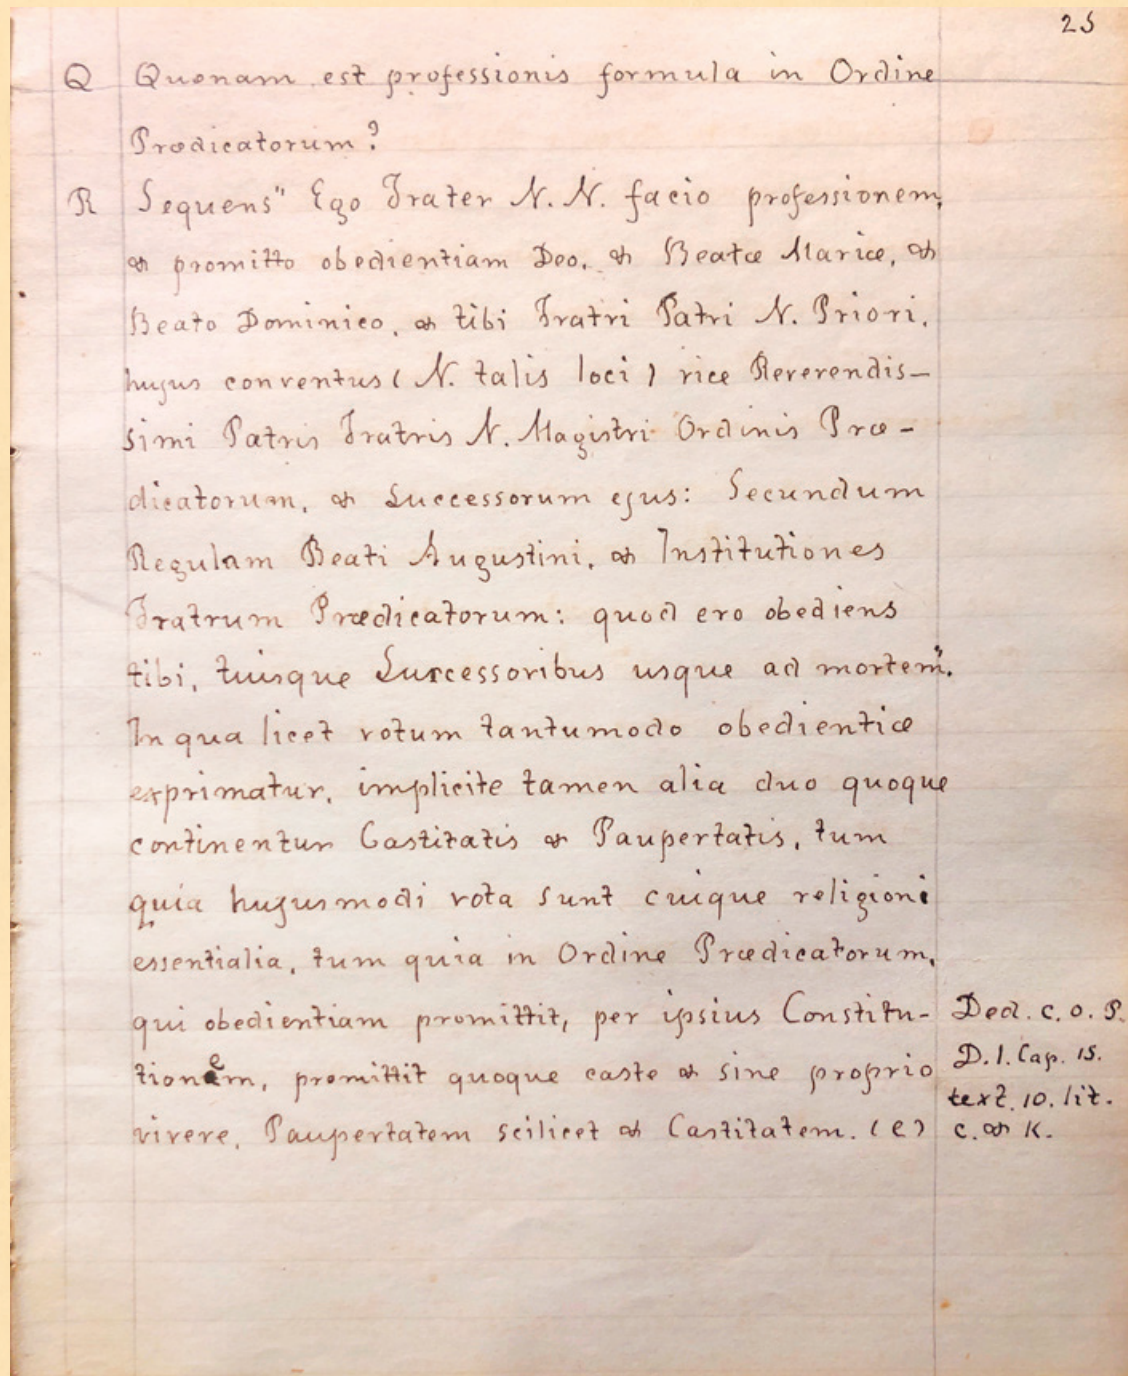 25
Q Quænam est professionis formula in Ordine
Prædicatorum?
R Sequens" Ego Frater N. N. facio professionem,
& promitto obedientiam Deo, & Beatæ Mariæ, &
Beato Dominico, & tibi Fratri Patri N. Priori,
hujus conventus (N. talis loci) vice Reverendis-
simi Patris Fratris N. Magistri Ordinis Præ-
dicatorum, & Successorum ejus: Secundum
Regulam Beati Augustini, & Institutiones
Fratrum Prædicatorum: quod ero obediens
tibi, tuisque Successoribus usque ad mortem".
In qua licet votum tantumodo obedientiæ
exprimatur, implicite tamen alia duo quoque
continentur Castitatis & Paupertatis, tum
quia hujusmodi vota sunt cuique religioni
essentialia, tum quia in Ordine Prædicatorum,
qui obedientiam promittit, per ipsius Constitu-
tionem, promittit quoque caste & sine proprio
vivere, Paupertatem scilicet & Castitatem. (e)
Decl. C. O. P.
D. 1. Cap. 15.
text. 10. lit.
c. & K.